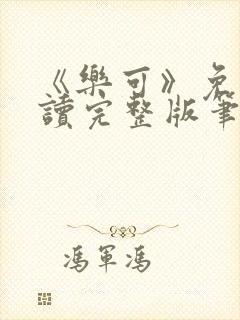 《樂可》免
讀完整版筆
馮軍馮